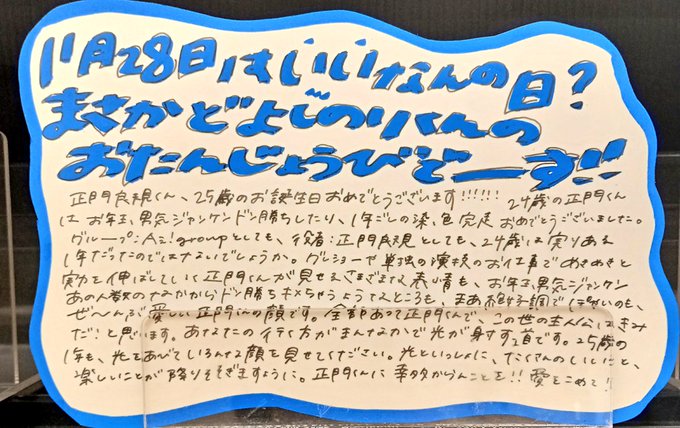 11月28日はいいなんの日?
まさかどよしのりくんの
おたんじょうびでーす!!
正門良規くん、25歳のお誕生日おめでとうございます!!!!!! 24歳の正門くん
はお年玉男気ジャンケンドン勝ちしたり、1年ごしの染色完走おめでとうございました。
グループ:Aぇ!groupとしても、役者:正門良規としても、24歳は実りある
1年だったのではないでしょうか。グループや単独の演技のお仕事でめきめきと
実力を伸ばしていく正門くんが見せるさまざまな表情も、お年玉男気ジャンケン
あの人数のなかからドン勝ちキメちゃうようなところも、まあ絶好調ではないのも、
ぜ〜んぶ愛しい正門くんの顔です。全部あって正門くんで、この世の主人公はきみ
だ!と思います。あなたの行く方がまんなかで光が射す道です。25歳の
1年も、光をあびていろんな顔を見せてください。光といっしょに、たくさんのしいことと、
楽しいことが降りそそぎますように。正門くんに幸多からんことを!!愛をこめて!